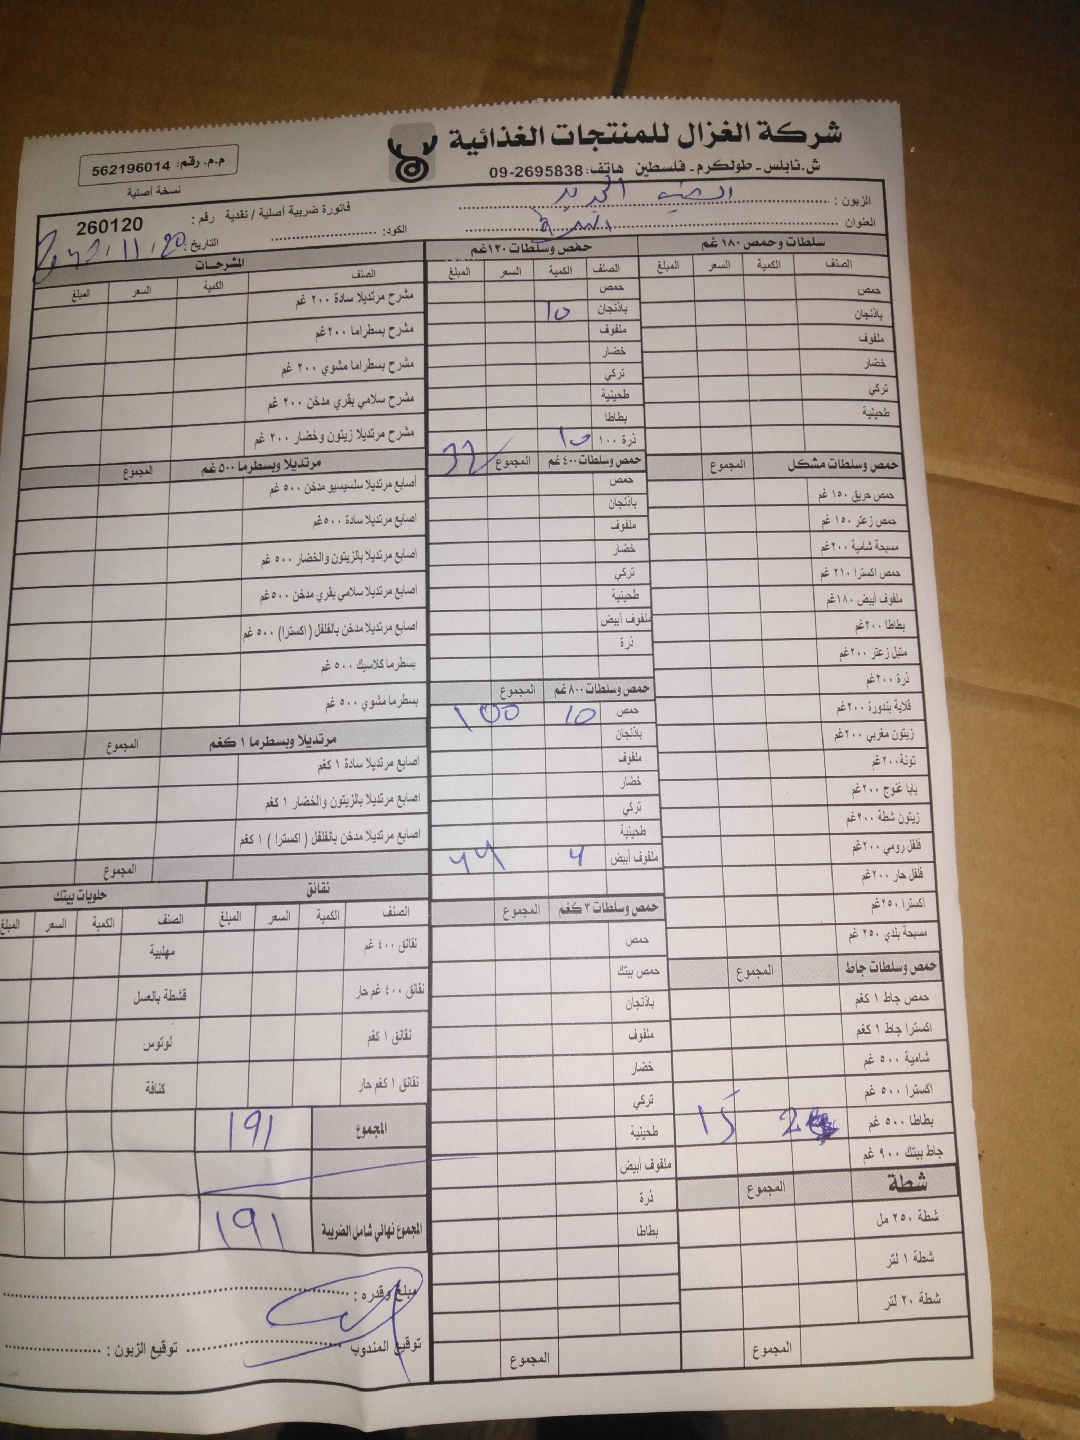 شركة الغزال للمنتجات الغذائية
ش. نابلس - طولكرم - فلسطين هاتف: 09-2695838
م.م. رقم: 562196014
نسخة أصلية
الزبون :
العنوان
فاتورة ضريبة أصلية / نقدية رقم : 260120
الكود:
التاريخ:
سلطات وحمص ١٨٠ غم
الصنف الكمية السعر المبلغ
حمص
باذنجان
ملفوف
خضار
تركي
طحينية
حمص وسلطات مشكل المجموع
حمص حريق ١٥٠ غم
حمص زعتر ١٥٠ غم
مسبحة شامية ٢٠٠غم
حمص اكسترا ٢١٠ غم
ملفوف أبيض ١٨٠غم
بطاطا ٢٠٠غم
متبل زعتر ٢٠٠غم
ذرة ٢٠٠غم
قلاية بندورة ٢٠٠غم
زيتون مغربي ٢٠٠غم
تونة٢٠٠غم
بابا غنوج ٢٠٠غم
زيتون شطة ٢٠٠غم
فلفل رومي ٢٠٠غم
فلفل حار ٢٠٠غم
اكسترا ٢٥٠غم
مسبحة بلدي ٢٥٠ غم
حمص وسلطات جاط المجموع
حمص جاط ١ كغم
اكسترا جاط ١ كغم
شامية ٥٠٠ غم
اكسترا ٥٠٠ غم
بطاطا ٥٠٠ غم 2 15
جاط بيتك ٩٠٠ غم
شطة المجموع
شطة ٢٥٠ مل
شطة ١ لتر
شطة ٢٠ لتر
المجموع
حمص وسلطات ١٢٠غم
الصنف الكمية السعر المبلغ
حمص
باذنجان 10
ملفوف
خضار
تركي
طحينية
بطاطا
ذرة ١٠٠ 10
حمص وسلطات ٤٠٠ غم المجموع 32
حمص
باذنجان
ملفوف
خضار
تركي
طحينية
ملفوف أبيض
ذرة
حمص وسلطات ٨٠٠ غم المجموع
حمص 10 100
باذنجان
ملفوف
خضار
تركي
طحينية
ملفوف أبيض 4 44
حمص وسلطات ٣ كغم المجموع
حمص
حمص بيتك
باذنجان
ملفوف
خضار
تركي
طحينية
ملفوف أبيض
ذرة
بطاطا
المجموع
المشرحات
الصنف الكمية السعر المبلغ
مشرح مرتديلا سادة ٢٠٠ غم
مشرح بسطراما ٢٠٠غم
مشرح بسطراما مشوي ٢٠٠ غم
مشرح سلامي بقري مدخن ٢٠٠ غم
مشرح مرتديلا زيتون وخضار ٢٠٠ غم
مرتديلا وبسطرما ٥٠٠ غم المجموع
أصابع مرتديلا سلسيسيو مدخن ٥٠٠ غم
اصابع مرتديلا سادة ٥٠٠غم
اصابع مرتديلا بالزيتون والخضار ٥٠٠ غم
اصابع مرتديلا سلامي بقري مدخن ٥٠٠غم
اصابع مرتديلا مدخن بالفلفل ( اكسترا) ٥٠٠ غم
بسطرما كلاسيك ٥٠٠ غم
بسطرما مشوي ٥٠٠ غم
مرتديلا وبسطرما ١ كغم المجموع
اصابع مرتديلا سادة ١ كغم
اصابع مرتديلا بالزيتون والخضار ١ كغم
اصابع مرتديلا مدخن بالفلفل ( اكسترا ) ١ كغم
المجموع
نقانق
الصنف الكمية السعر المبلغ
نقانق ٤٠٠ غم
نقانق ٤٠٠ غم حار
نقانق ١ كغم
نقانق ١ كغم حار
حلويات بيتك
الصنف الكمية السعر المبلغ
مهلبية
قشطة بالعسل
لوتوس
كنافة
المجموع 191
المجموع نهائي شامل الضريبة 191
مبلغ وقدره :
توقيع المندوب توقيع الزبون :